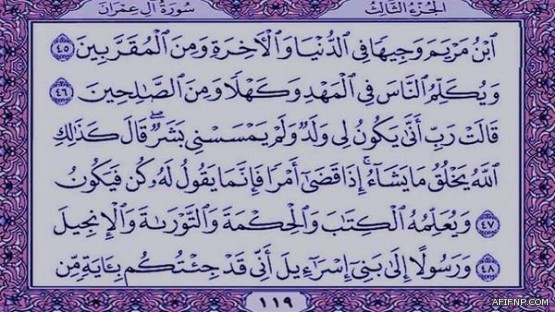 الجزء الثالث
سورة آل عمران
ابْنُ مَرْيَمَ وَجِيهًا فِي الدُّنْيَا وَالْآخِرَةِ وَمِنَ الْمُقَرَّبِينَ ٤٥
وَيُكَلِّمُ النَّاسَ فِي الْمَهْدِ وَكَهْلًا وَمِنَ الصَّالِحِينَ ٤٦
قَالَتْ رَبِّ أَنَّىٰ يَكُونُ لِي وَلَدٌ وَلَمْ يَمْسَسْنِي بَشَرٌ ۖ قَالَ كَذَٰلِكِ
اللَّهُ يَخْلُقُ مَا يَشَاءُ ۚ إِذَا قَضَىٰ أَمْرًا فَإِنَّمَا يَقُولُ لَهُ كُن فَيَكُونُ
٤٧ وَيُعَلِّمُهُ الْكِتَابَ وَالْحِكْمَةَ وَالتَّوْرَاةَ وَالْإِنجِيلَ
٤٨ وَرَسُولًا إِلَىٰ بَنِي إِسْرَائِيلَ أَنِّي قَدْ جِئْتُكُم بِآيَةٍ مِّن
١١٩
AFIFNP.COM